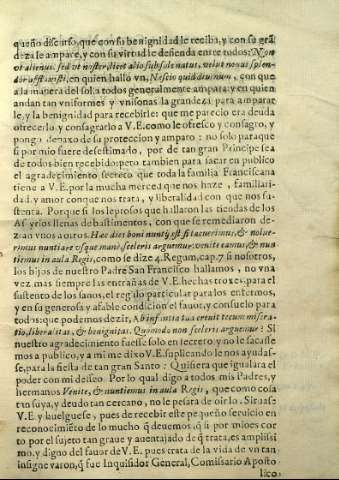 queño discurso, que con su benignidad le reciba, y con su grã
deza le ampare, y con su virtud le defienda entre todos: Non
vt alienus, sed vt noster, licet alio sub sole natus, velut nouus splen-
dor assi, en quien hallo vn, Nescio quid diuinum, con que
a la manera del sol a todos generalmente ampara: y en quien
andan tan vniformes y vnisonas la grandeza para amparar
le, y la benignidad para recebirle: que me parecio era deuda
ofrecerlo y consagrarlo a V.E. como le ofresco y consagro, y
pongo debaxo de su proteccion y amparo: no solo para que
si por mio fuere desestimado, por de tan gran Principe sea
de todos bien recebido: pero tambien para sacar en publico
el agradecimiento secreto que toda la familia Franciscana
tiene a V.E. por la mucha merced que nos haze, familiari-
dad, y amor conque nos trata, y liberalidad con que nos su-
stenta. Porque si los leprosos que hallaron las tiendas de los
Assyrios llenas de bastimentos, con que se remediaron de-
zian vnos a otros. Hæc dies boni nuntij est si tacuerimus, & nolue-
rimus nuntiare vsque mane, sceleris arguemur: venite eamus, & nun
tiemus in aula Regis, como se dize 4. Regum, cap. 7. si nosotros,
los hijos de nuestro Padre San Francisco hallamos, no vna
vez mas siempre las entrañas de V.E. hechas troxes, para el
sustento de los sanos, el regalo particular para los enfermos,
y en su generosa y afable condicion el fauor, y consuelo para
todos: que podemos dezir, Ab infantia tua creuit tecum misera-
tio, liberalitas, & benignitas. Quomodo non sceleris arguemur: Si
nuestro agradecimiento fuesse solo en secreto, y no le sacasse
mos a publico, y a mi me dixo V.E. suplicandole nos ayudas-
se, para la fiesta de tan gran Santo: Quisiera que igualara el
poder con mi desseo. Por lo qual digo a todos mis Padres, y
hermanos Venite, & nuntiemus in aula Regis, que como cosa
tan suya, y deudo tan cercano, no le pesara de oirlo. Siruase
V.E. y huelguese, pues de recebir este pequeño seruicio en
reconocimiẽto de lo mucho q̃ deuemos, q̃ si por mio es cor
to por el sujeto tan graue y auentajado de q̃ trata, es amplissi
mo, y digno del fauor de V.E. pues trata la vida de vn tan
insigne varon, q̃ fue Inquisidor General, Comissario Aposto
lico